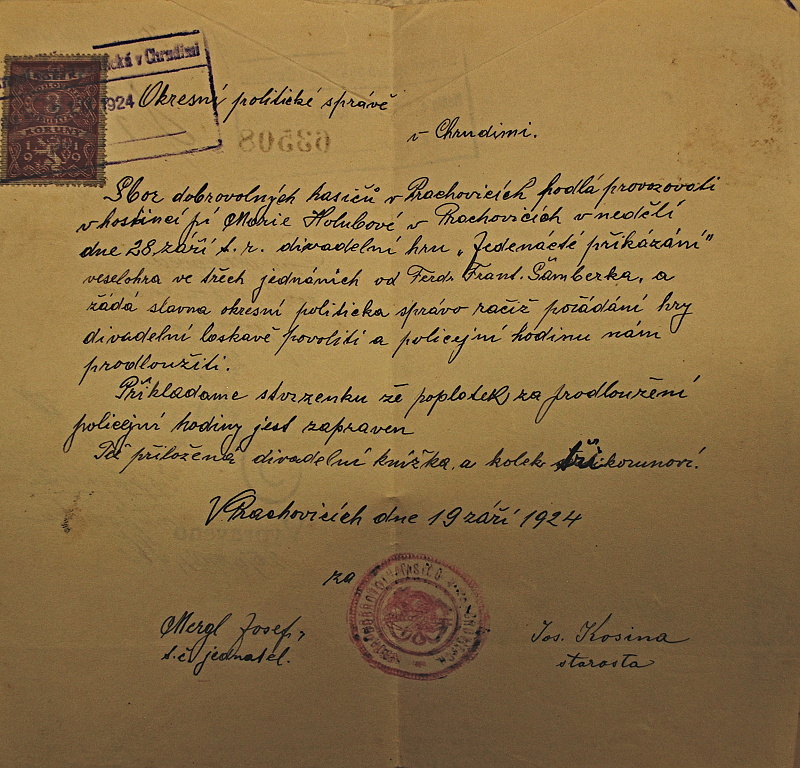 ická v Chrudimi
1924
Okresní politické správě
63508
v Chrudimi.
Sbor dobrovolných hasičů v Prachovicích hodlá provozovati
v hostinci pí Marie Holubové v Prachovicích v neděli
dne 28. září t. r. divadelní hru „Jedenácté přikázání"
veselohra ve třech jednáních od Ferd. Frant. Šamberka, a
žádá slavna okresní politicka správo račiž pořádání hry
divadelní laskavě povoliti a policejní hodinu nám
prodloužiti.
Přikladame stvrzenku že poplatek za prodloužení
policejní hodiny jest zapraven
Též přiložená divadelní knížka, a kolek tří korunoví.
V Prachovicích dne 19 září 1924
za
Mergl Josef,
t.č. jednatel.
Jos. Kosina
starosta